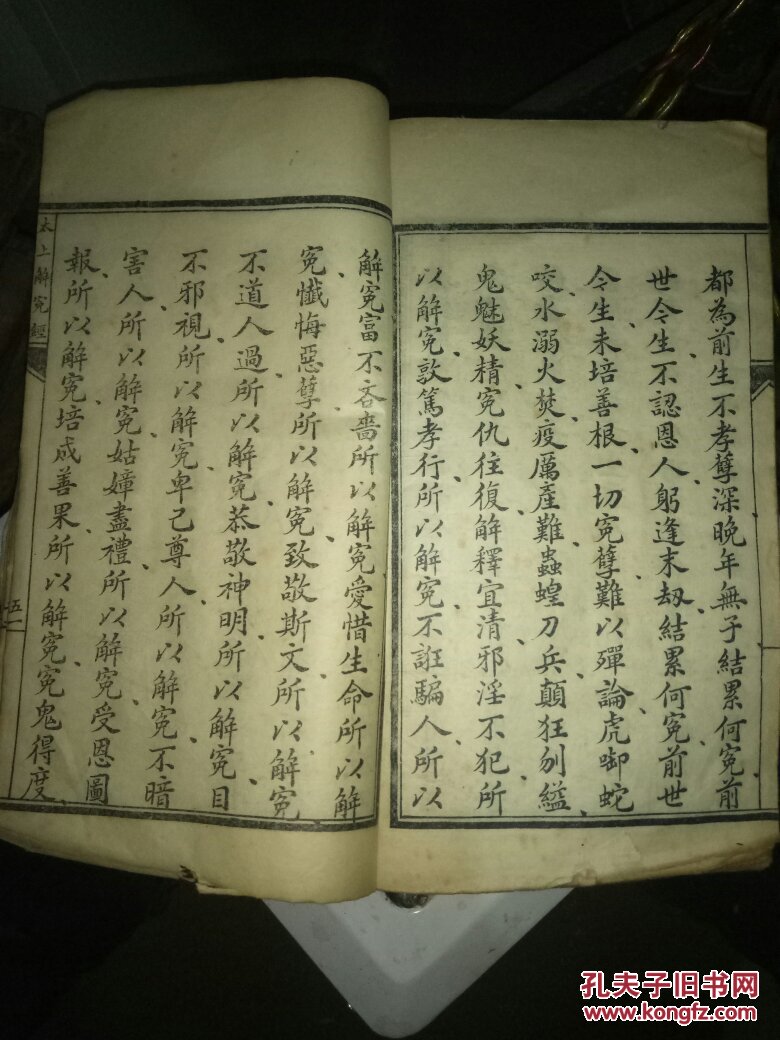 都為前生不孝孽深晚年無子結累何冤前
世令生不認恩人躬逢末刼結累何冤前世
令生未培善根一切冤孽難以殫論虎啣蛇
咬水溺火焚疫厲產難蟲蝗刀兵顛狂刎縊
鬼魅妖精冤仇往復解釋宜清邪淫不犯所
以解冤敦篤孝行所以解冤不誑騙人所以
解冤富不吝嗇所以解冤愛惜生命所以解
冤懺悔惡孽所以解冤致敬斯文所以解冤
不道人過所以解冤恭敬神明所以解冤目
不邪視所以解冤卑己尊人所以解冤不暗
害人所以解冤姑嫜盡禮所以解冤受恩圖
報所以解冤培成善果所以解冤冤鬼得度
太上解冤經
五一
孔夫子旧书网
www.kongfz.com